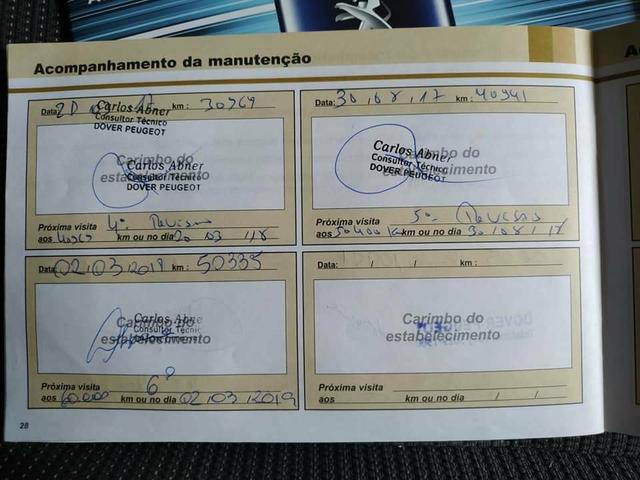 Acompanhamento da manutenção
Data: km: 30969
Carlos Abner
Consultor Técnico
DOVER PEUGEOT
Carimbo do
estabelecimento
Carlos Abner
Consultor Técnico
DOVER PEUGEOT
Próxima visita 4º Revisão
aos km ou no dia 20 03 18
Data: 30/08/17 km: 40941
Carimbo do
estabelecimento
Carlos Abner
Consultor Técnico
DOVER PEUGEOT
Próxima visita 5º Revisão
aos km ou no dia 30/08/18
Data: 02/03/2018 km: 50335
Carimbo do
estabelecimento
Carlos Abner
Consultor Técnico
Próxima visita 6º
aos 60.000 km ou no dia 02/03/2019
Data: / / km:
Carimbo do
estabelecimento
Próxima visita
aos km ou no dia / /
28